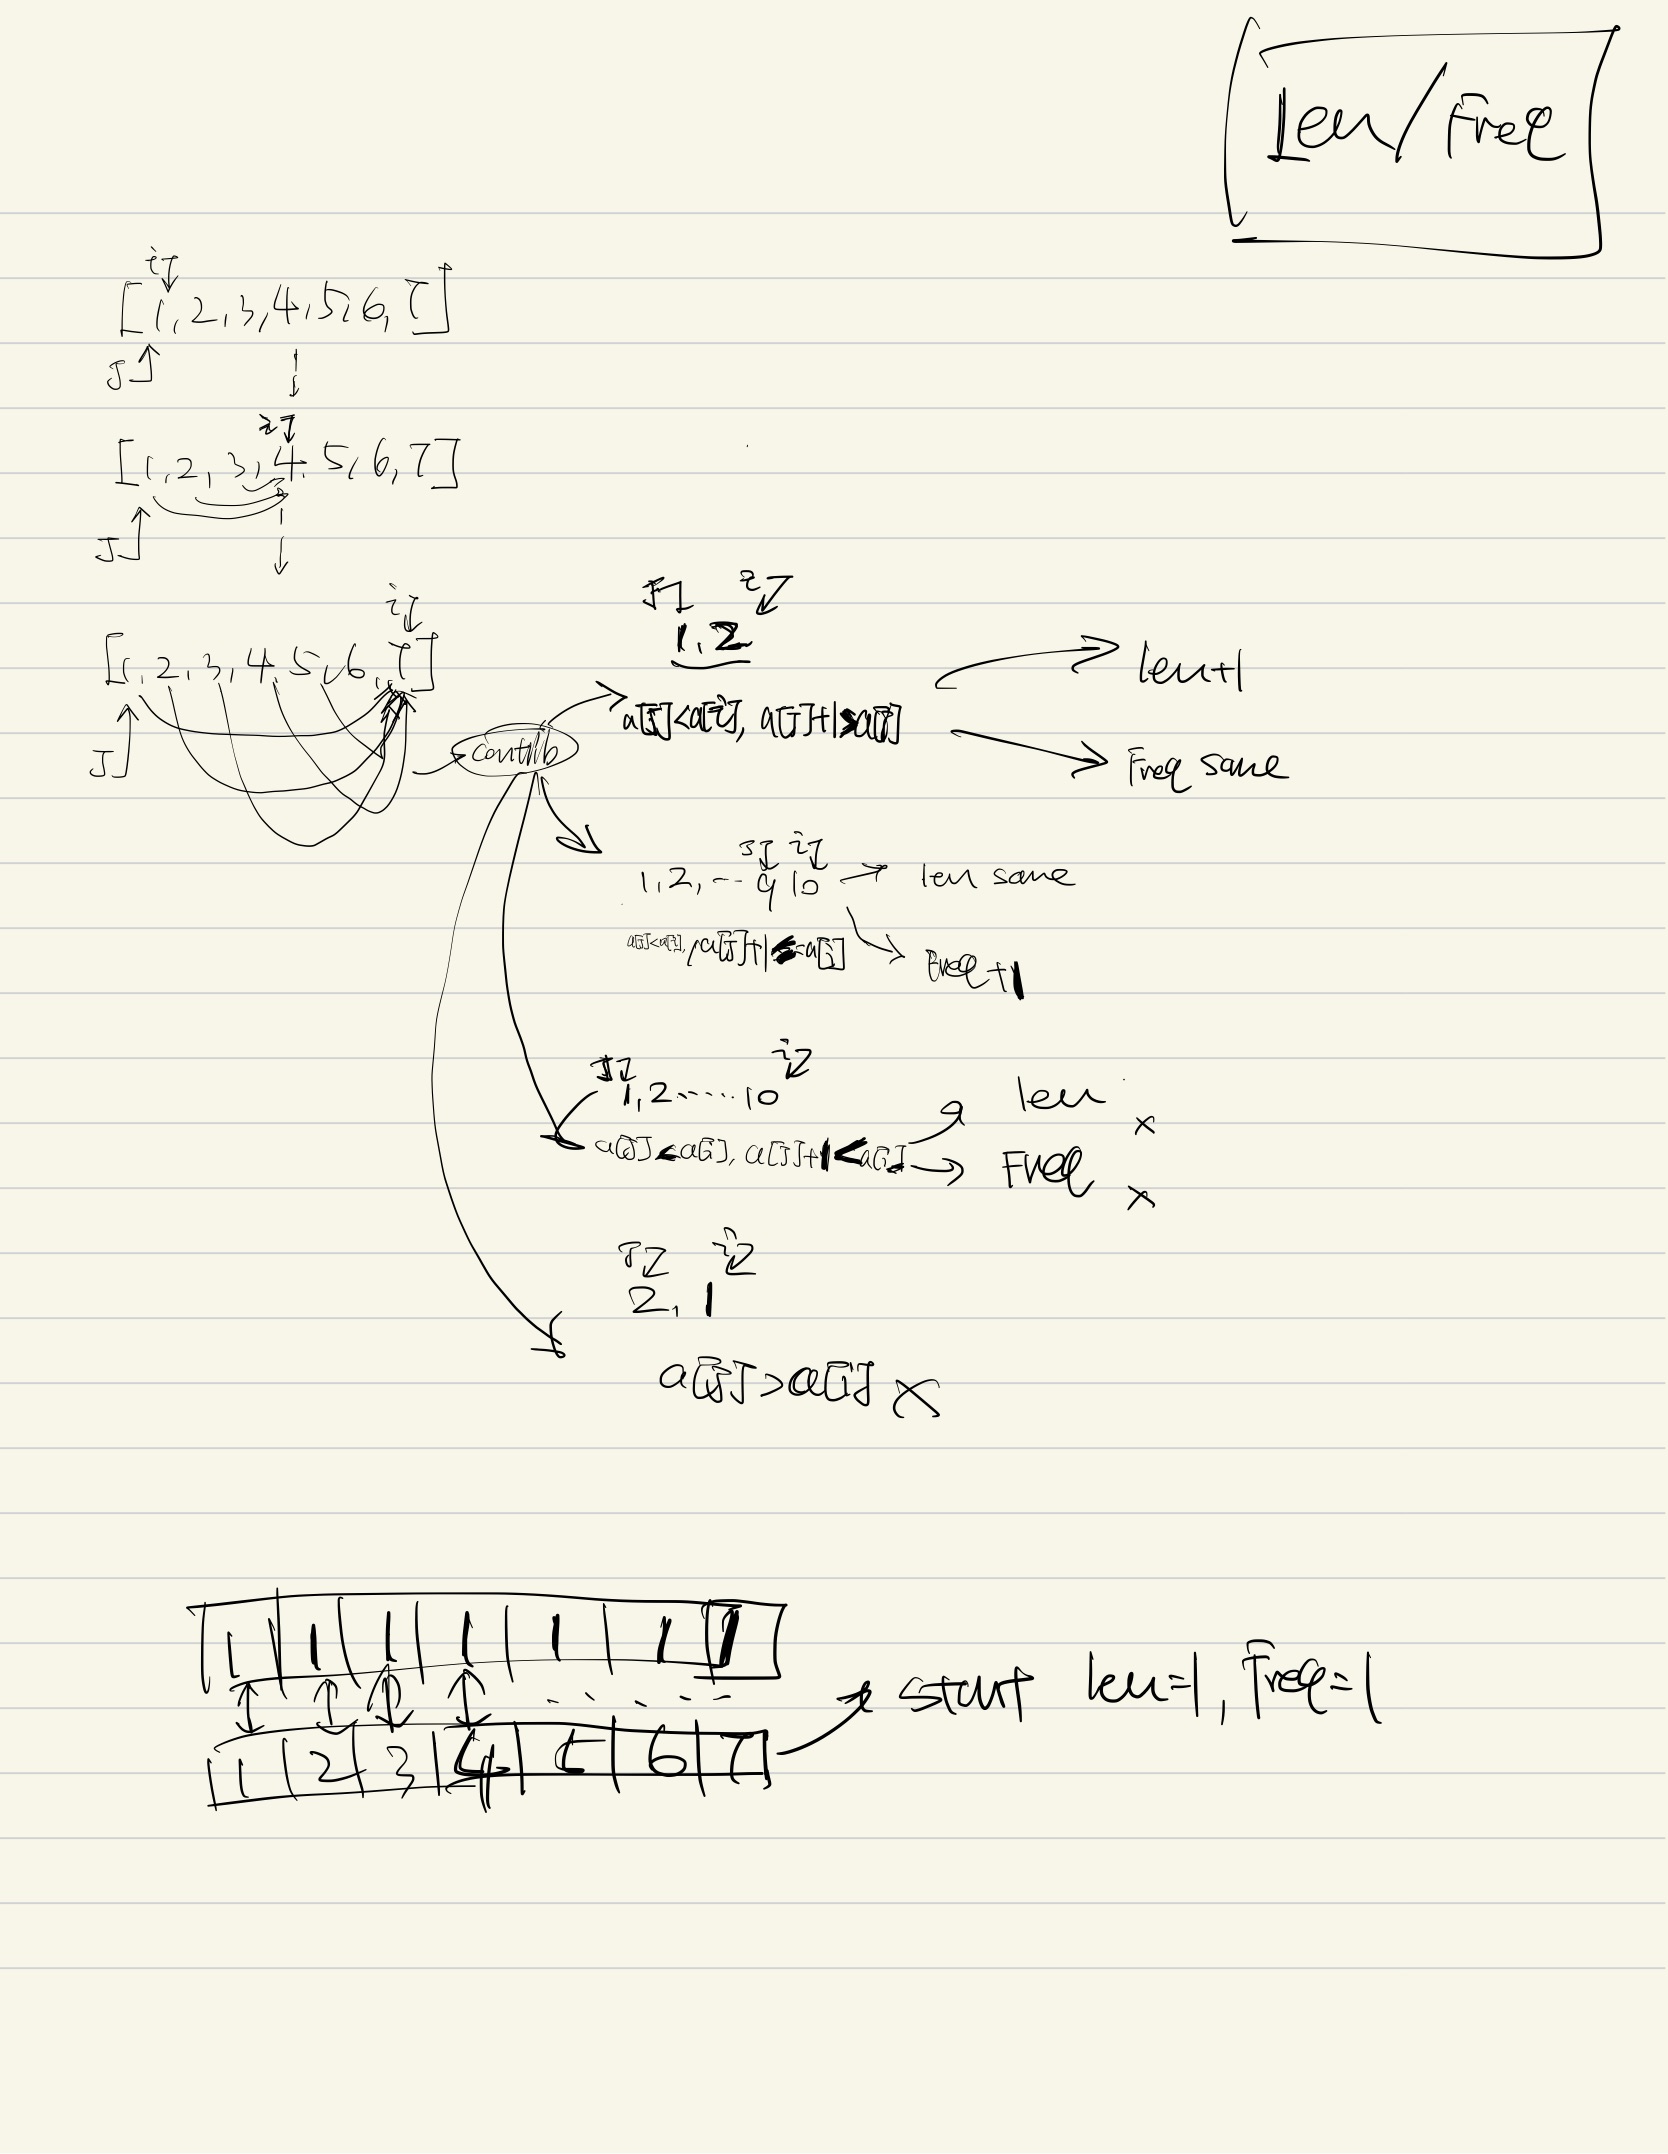 Len/Freq
i
[1,2,3,4,5,6,7]
J
i
[1,2,3,4,5,6,7]
J
i
[1,2,3,4,5,6,7]
J
contrib
J i
1,2
a[J]<a[i], a[J]+1>a[i]
len+1
Freq same
J i
1,2,--9 10
len same
a[J]<a[i], a[J]+1==a[i]
Freq+1
J i
1,2.....10
a[J]<a[i], a[J]+1<a[i]
len x
Freq x
J i
2,1
a[J]>a[i] x
1 1 1 1 1 1 1
1 2 3 4 5 6 7
start len=1, Freq=1